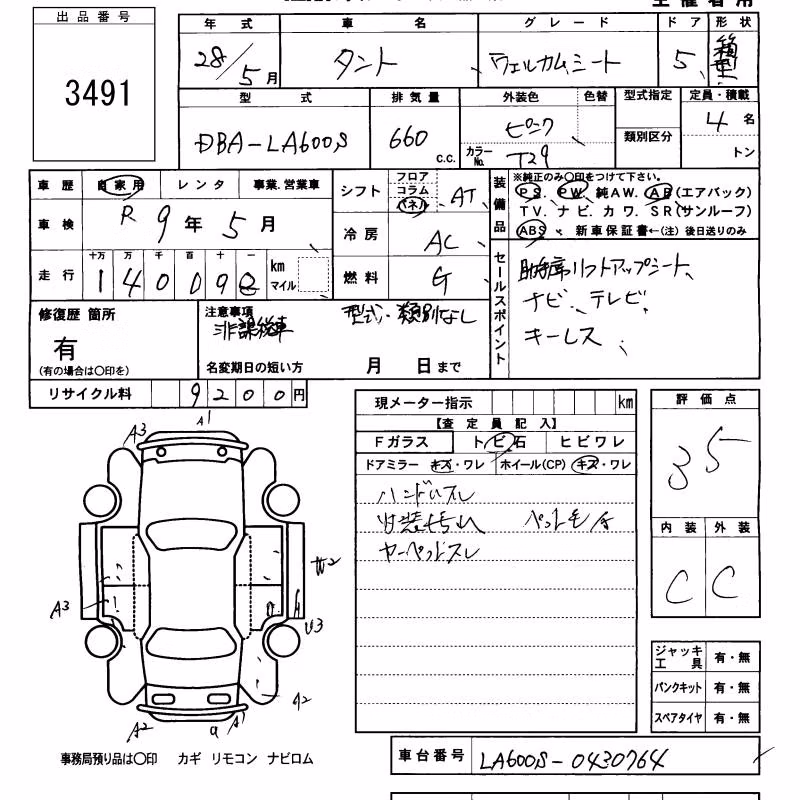 出品番号
3491
年式 車名 グレード ドア 形状
28/5月 タント ウェルカムシート 5 箱型
型式 排気量 外装色 色替 型式指定 定員・積載
DBA-LA600S 660 c.c. ピンク 4名
カラーNo. T29 類別区分 トン
車歴 自家用 レンタ 事業.営業車
車検 R 9年5月
走行 十万 万 千 百 十 一 km マイル
シフト フロア コラム インパネ AT
冷房 AC
燃料 G
装備品 ※純正のみ○印をつけて下さい。
PS. PW. 純AW. AB(エアバック)
TV. ナビ. カワ. SR(サンルーフ)
ABS 新車保証書←(注)後日送りのみ
セールスポイント
助手席リフトアップシート、
ナビ、テレビ、
キーレス、
修復歴 箇所
有
(有の場合は○印を)
注意事項 型式・類別なし
非課税車
名変期日の短い方 月 日まで
リサイクル料 9200円
現メーター指示 km
【査定員記入】
Fガラス トビ石 ヒビワレ
ドアミラー キズ・ワレ ホイール(CP) キズ・ワレ
ハンドルスレ
内装汚れ ペット毛有
カーペットスレ
評価点
3.5
内装 外装
C C
A1
A3
W2
A3
U3
A2
A2
A1
ジャッキ工具 有・無
パンクキット 有・無
スペアタイヤ 有・無
事務局預り品は○印 カギ リモコン ナビロム
車台番号 LA600S-0430764